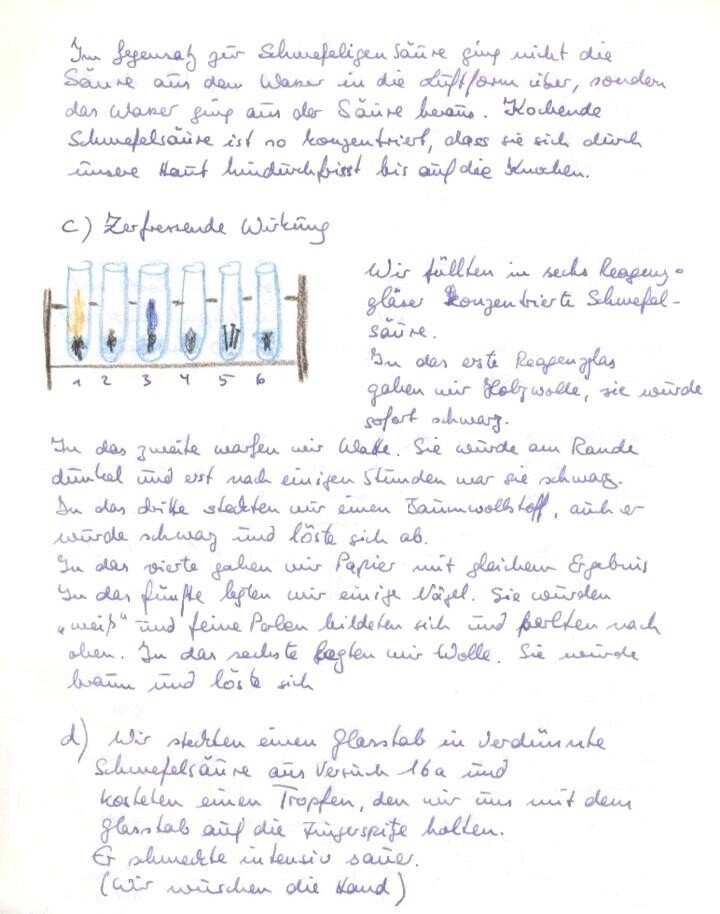 Im Gegensatz zur Schwefeligen Säure ging nicht die
Säure aus dem Wasser in die Luftform über, sondern
das Wasser ging aus der Säure heraus. Kochende
Schwefelsäure ist so konzentriert, dass sie sich durch
unsere Haut hindurchfrisst bis auf die Knochen.
c) Zerfressende Wirkung
Wir füllten in sechs Reagenz-
gläser konzentrierte Schwefel-
säure.
In das erste Reagenzglas
gaben wir Holzwolle, sie wurde
sofort schwarz.
1 2 3 4 5 6
In das zweite warfen wir Watte. Sie wurde am Rande
dunkel und erst nach einigen Stunden war sie schwarz.
In das dritte steckten wir einen Baumwollstoff, auch er
wurde schwarz und löste sich ab.
In das vierte gaben wir Papier mit gleichem Ergebnis
In das fünfte legten wir einige Nägel. Sie wurden
„weiß" und feine Perlen bildeten sich und perlten nach
oben. In das sechste legten wir Wolle. Sie wurde
braun und löste sich
d) Wir steckten einen Glasstab in verdünnte
Schwefelsäure aus Versuch 16a und
kosteten einen Tropfen, den wir uns mit dem
Glasstab auf die Fingerspitze holten.
Er schmeckte intensiv sauer.
(Wir wuschen die Hand)